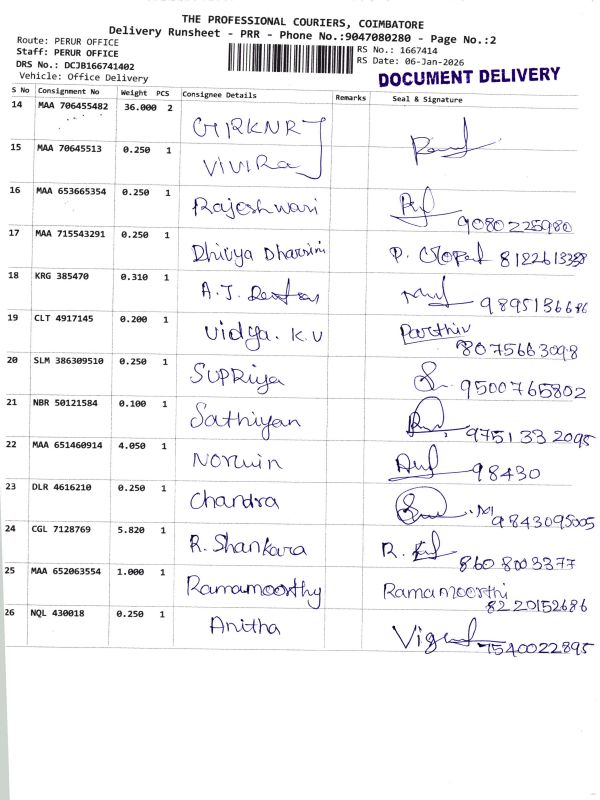 THE PROFESSIONAL COURIERS, COIMBATORE
Delivery Runsheet - PRR - Phone No.:9047080280 - Page No.:2
Route: PERUR OFFICE
Staff: PERUR OFFICE
DRS No.: DCJB166741402
Vehicle: Office Delivery
RS No.: 1667414
RS Date: 06-Jan-2026
DOCUMENT DELIVERY
S No Consignment No Weight PCS Consignee Details Remarks Seal & Signature
14 MAA 706455482 36.000 2 GTRKNR
15 MAA 70645513 0.250 1 VIVIRa
16 MAA 653665354 0.250 1 Rajeshwari 9080225980
17 MAA 715543291 0.250 1 Dhivya Dharsini P. 8122613338
18 KRG 385470 0.310 1 A.J. 9895136686
19 CLT 4917145 0.200 1 Vidya. K.V Parthiv 8075663098
20 SLM 386309510 0.250 1 SUPRiya 9500765802
21 NBR 50121584 0.100 1 Sathiyan 9751332095
22 MAA 651460914 4.050 1 Norwin 98430
23 DLR 4616210 0.250 1 Chandra 9843095005
24 CGL 7128769 5.820 1 R. Shankara R. 8608003377
25 MAA 652063554 1.000 1 Ramamoorthy Ramamoorthi 8220152686
26 NQL 430018 0.250 1 Anitha 7540022895